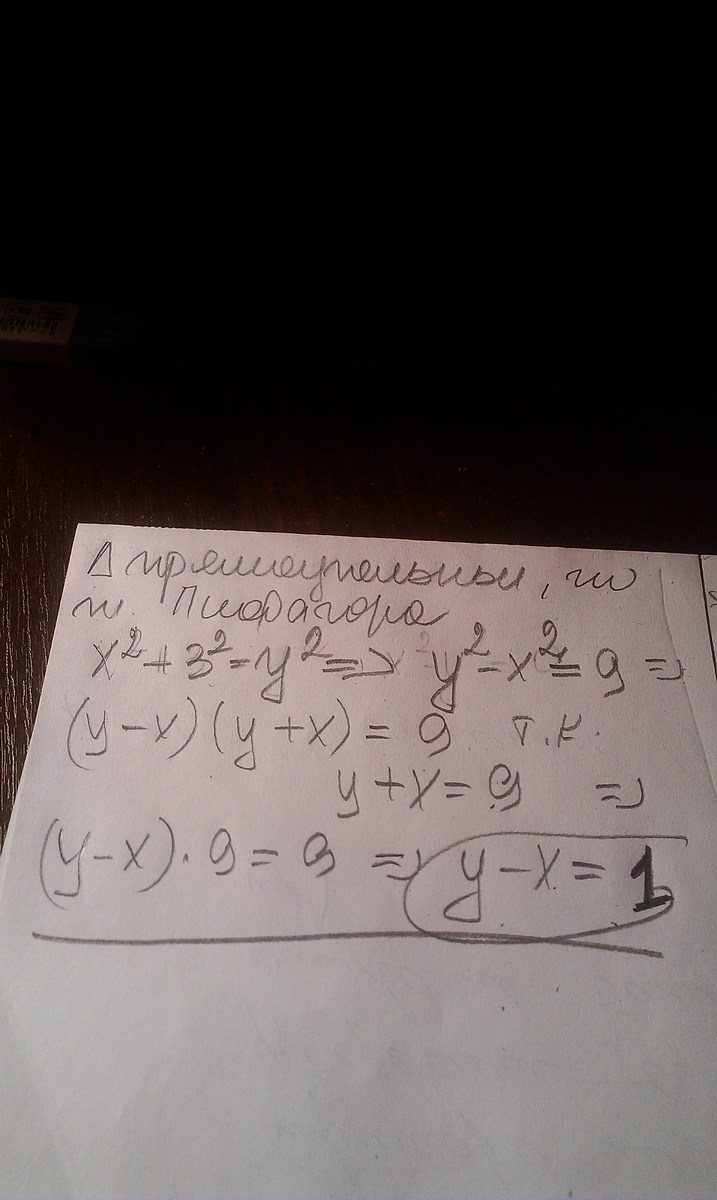 Δ прямоугольный, по
т. Пифагора
x² + 3² = y² => y² - x² = 9 =>
(y - x)(y + x) = 9 т.к.
y + x = 9 =>
(y - x) · 9 = 9 => y - x = 1